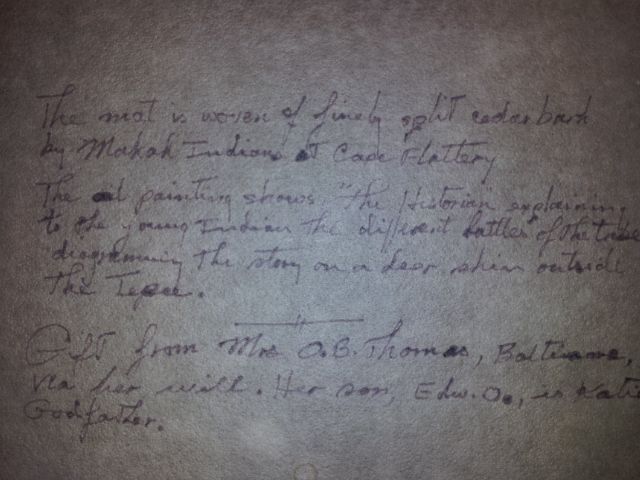 The mat is woven of finely split cedar bark
by Makah Indians at Cape Flattery
The oil painting shows, "the Historian" explaining
to the young Indian the different battles of the tribe
diagramming the story on a deer skin outside
the Tepee.
Gift from Mrs O.B. Thomas, Baltimore,
via her will. Her son, Edw. O., is
Godfather.